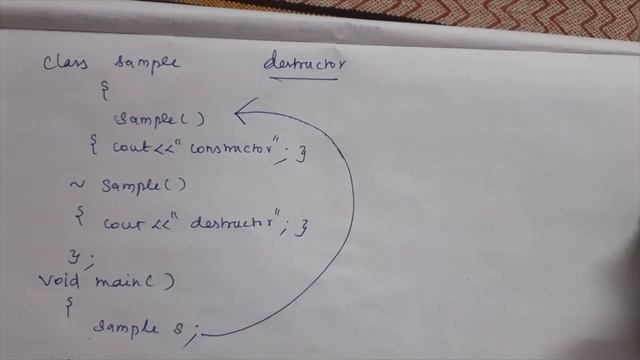 class sample destructor
{
sample()
{ cout<<"constructor"; }
~ sample()
{ cout<<" destructor"; }
};
void main()
{
sample s;